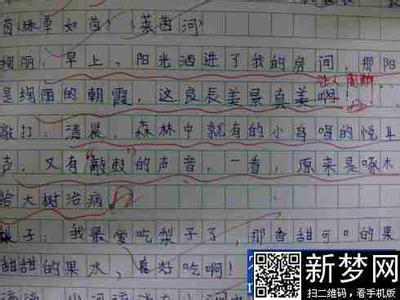 茵：绿草如茵）（莱茵河）
绚丽：早上，阳光洒进了我的房间，那阳
是绚丽的朝霞，这良辰美景真美啊！
敲打：清晨，森林中就有的小鸟唱的悦耳
声，又有"敲鼓"的声音，一看，原来是啄木
给大树治病
梨子：我最爱吃梨子了，那香甜可口的果
甜甜的果水，真好吃啊！
新梦网
扫二维码，看手机版